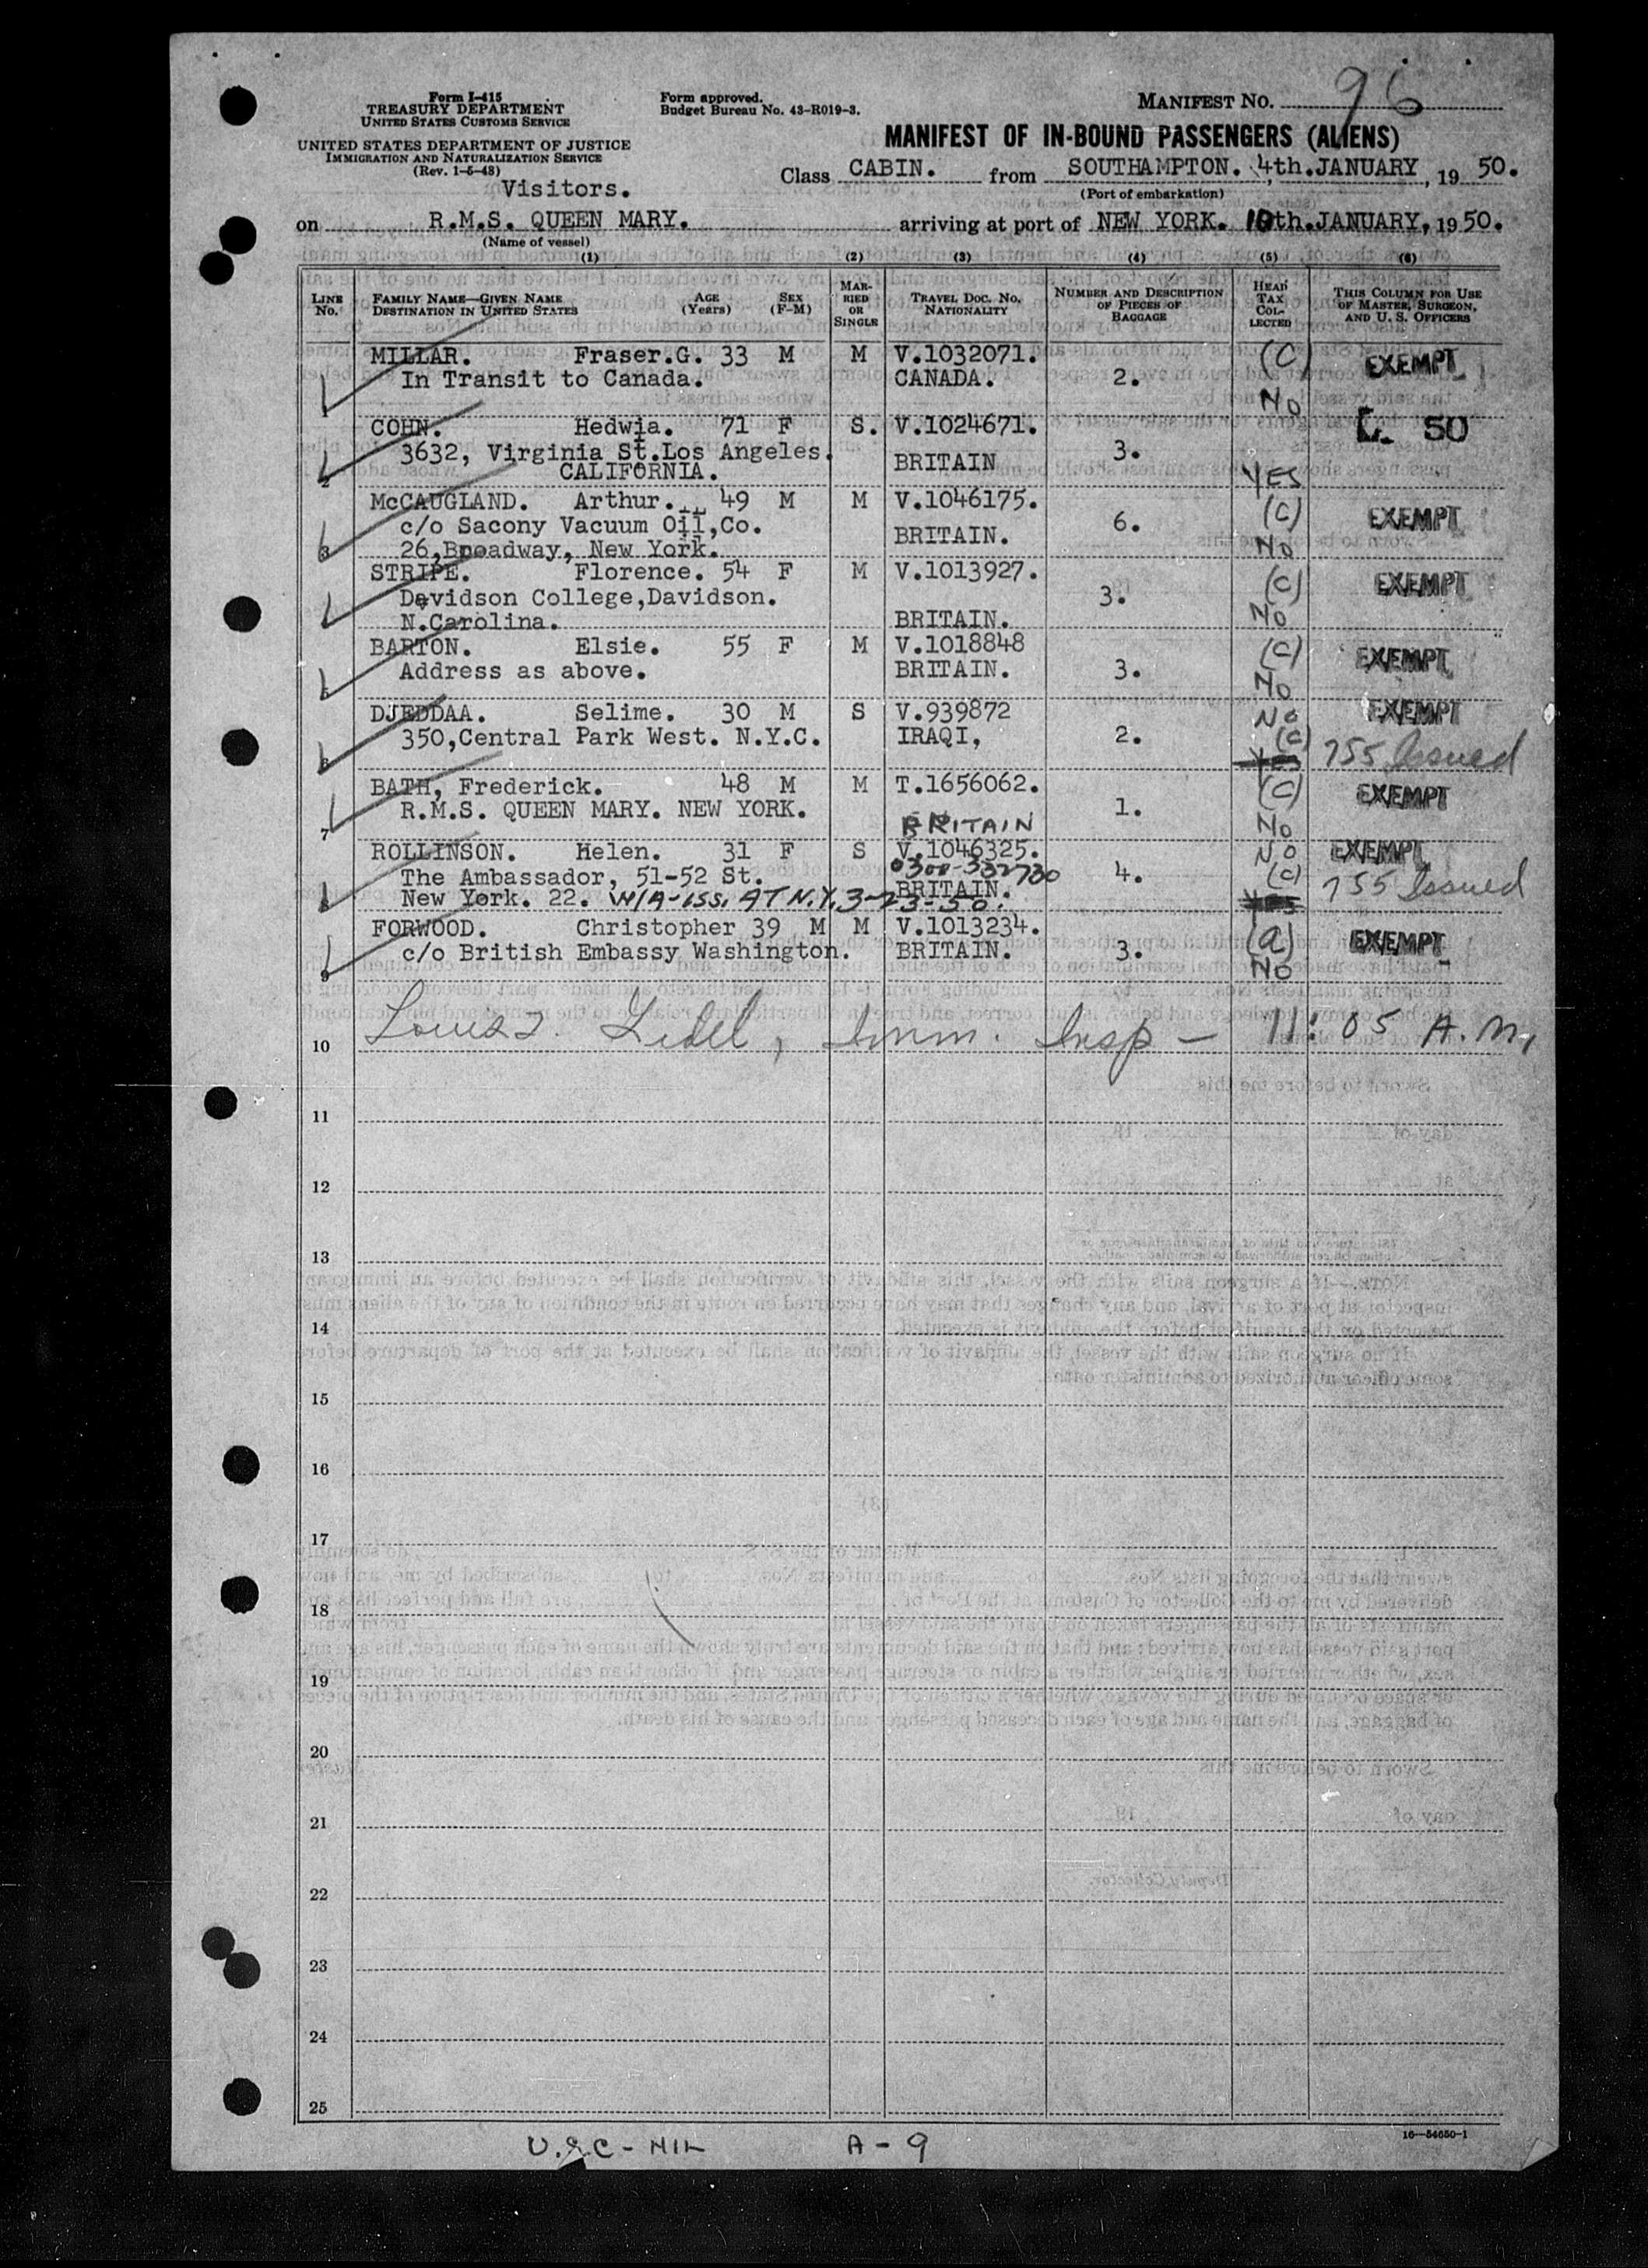 Form I-415
TREASURY DEPARTMENT
UNITED STATES CUSTOMS SERVICE
UNITED STATES DEPARTMENT OF JUSTICE
IMMIGRATION AND NATURALIZATION SERVICE
(Rev. 1-5-48)
Form approved.
Budget Bureau No. 43-R019-3.
MANIFEST NO. 96
MANIFEST OF IN-BOUND PASSENGERS (ALIENS)
Visitors.
Class CABIN. from SOUTHAMPTON. 4th.JANUARY, 19 50.
(Port of embarkation)
on R.M.S. QUEEN MARY. arriving at port of NEW YORK. 10th.JANUARY, 19 50.
(Name of vessel)
(1) (2) (3) (4) (5) (6)
LINE No. FAMILY NAME—GIVEN NAME DESTINATION IN UNITED STATES AGE (Years) SEX (F-M) MARRIED OR SINGLE TRAVEL DOC. NO. NATIONALITY NUMBER AND DESCRIPTION OF PIECES OF BAGGAGE HEAD TAX COLLECTED THIS COLUMN FOR USE OF MASTER, SURGEON, AND U. S. OFFICERS
MILLAR. Fraser.G. 33 M M V.1032071. (C) EXEMPT
In Transit to Canada. CANADA. 2.
1 No
COHN. Hedwia. 71 F S. V.1024671. L. 50
3632, Virginia St.Los Angeles. BRITAIN 3.
2 CALIFORNIA. YES
McCAUGLAND. Arthur. 49 M M V.1046175. (C) EXEMPT
c/o Sacony Vacuum Oil,Co. BRITAIN. 6.
3 26,Broadway, New York. No
STRIPE. Florence. 54 F M V.1013927. (C) EXEMPT
Davidson College,Davidson. 3.
N.Carolina. BRITAIN. No
BARTON. Elsie. 55 F M V.1018848 (C) EXEMPT
Address as above. BRITAIN. 3.
5 No
DJEDDAA. Selime. 30 M S V.939872 No EXEMPT
350,Central Park West. N.Y.C. IRAQI, 2. (C) 755 Issued
6
BATH, Frederick. 48 M M T.1656062. (C) EXEMPT
R.M.S. QUEEN MARY. NEW YORK. 1.
7 BRITAIN No
ROLLINSON. Helen. 31 F S V.1046325. No EXEMPT
The Ambassador, 51-52 St. 0300-332730 4. (C) 755 Issued
New York. 22. W/A-iss. AT N.Y. 3-23-50. BRITAIN.
FORWOOD. Christopher 39 M M V.1013234. (a) EXEMPT
c/o British Embassy Washington. BRITAIN. 3.
9 No
10 Imm. Insp - 11:05 A.M.
11
12
13
14
15
16
17
18
19
20
21
22
23
24
25
16—54650-1
U.S.C - NIL A - 9